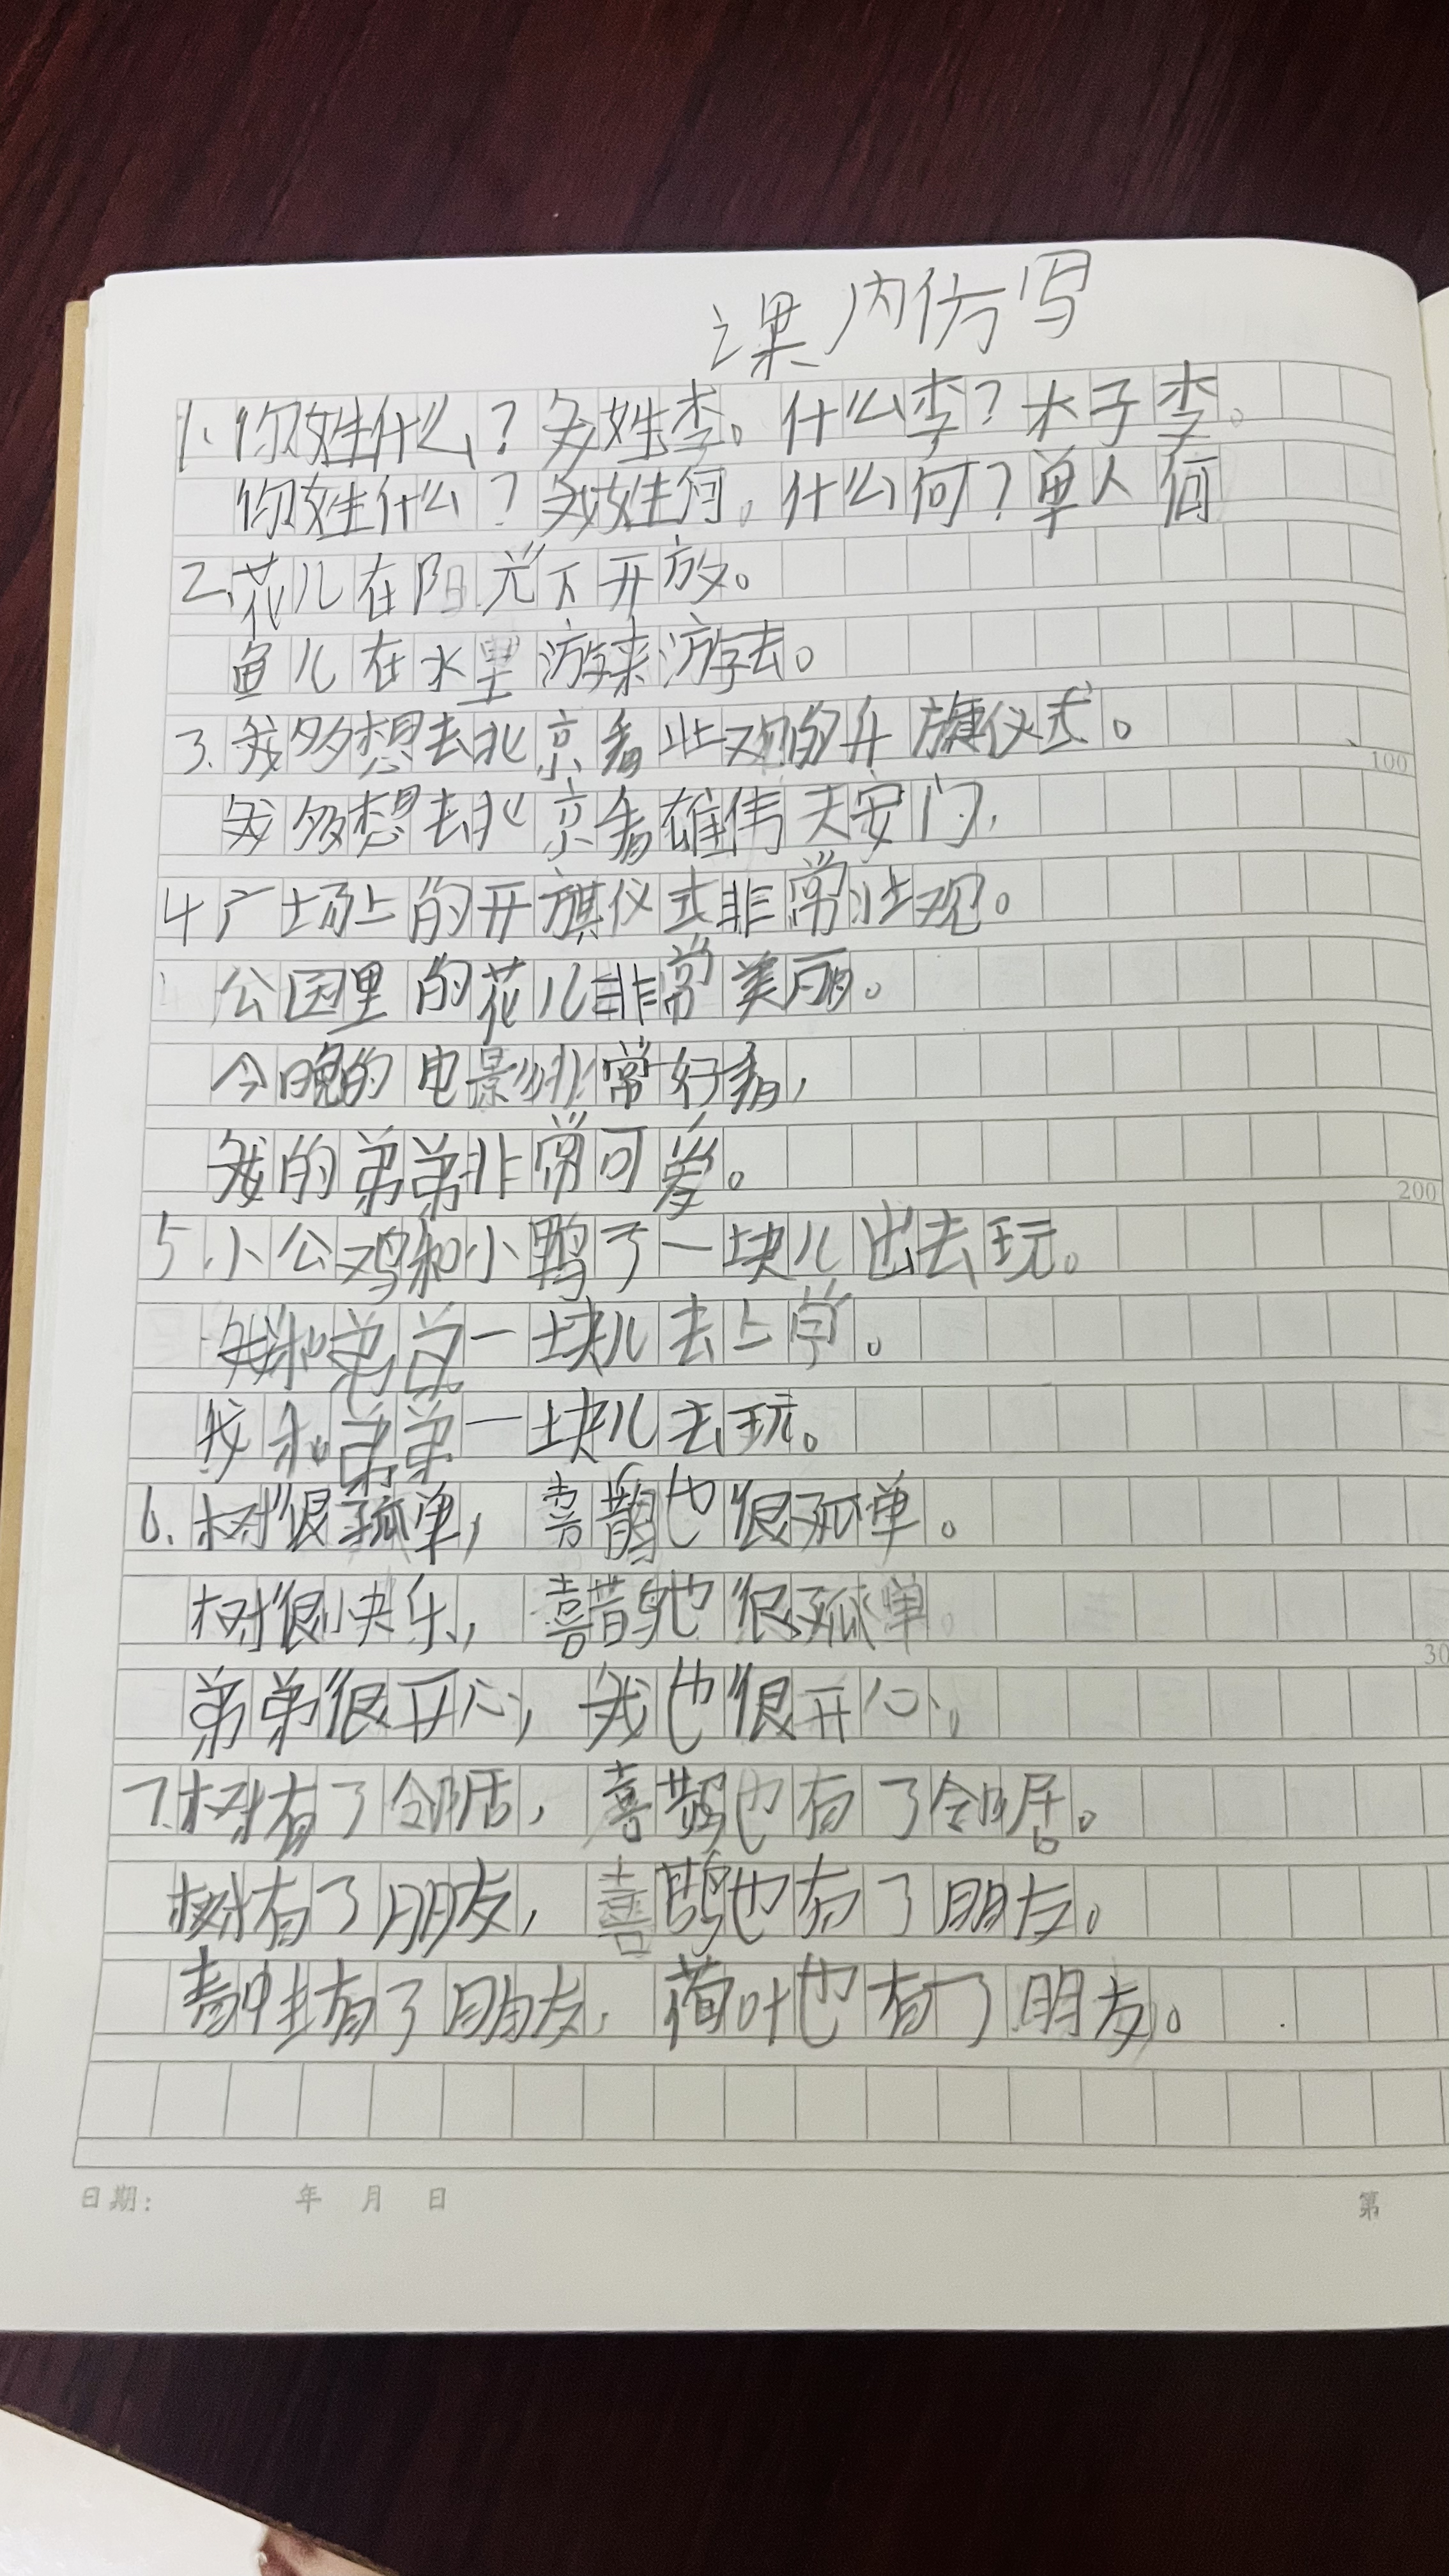 课内仿写
1、你姓什么？我姓李。什么李？木子李。
你姓什么？我姓何。什么何？单人何
2、花儿在阳光下开放。
鱼儿在水里游来游去。
3.我多想去北京看壮观的升旗仪式。
100
我多想去北京看雄伟天安门,
4广场上的升旗仪式非常壮观。
公园里的花儿非常美丽。
今晚的电影非常好看,
我的弟弟非常可爱。
200
5.小公鸡和小鸭子一块儿出去玩。
我和弟弟一块儿去上学。
我和弟弟一块儿去玩。
6.树很孤单,喜鹊也很孤单。
树很快乐,喜鹊也很孤单。
30
弟弟很开心,我也很开心。
7.树有了邻居,喜鹊也有了邻居。
树有了朋友,喜鹊也有了朋友。
青蛙有了朋友,荷叶也有了朋友。
日期: 年 月 日 第